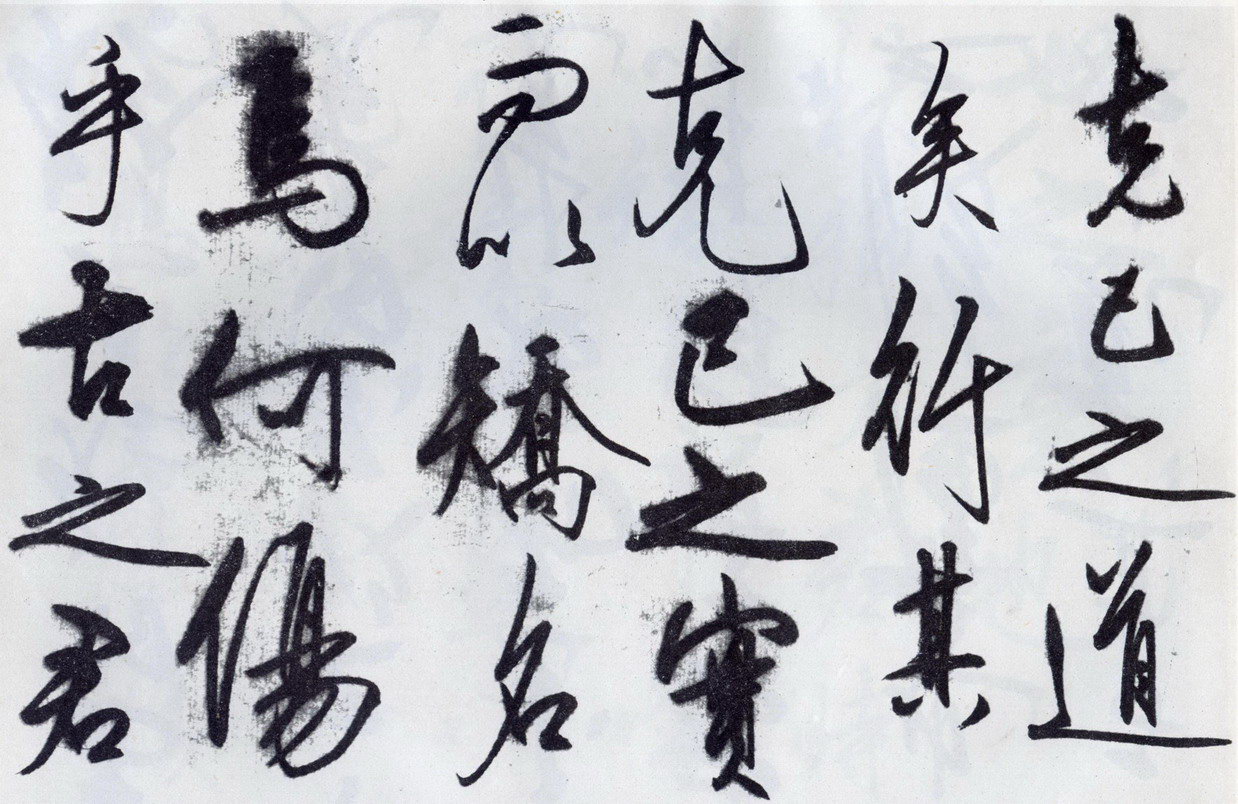 克己之道
矣行其
克己之實
而以矯名
焉何傷
乎古之君